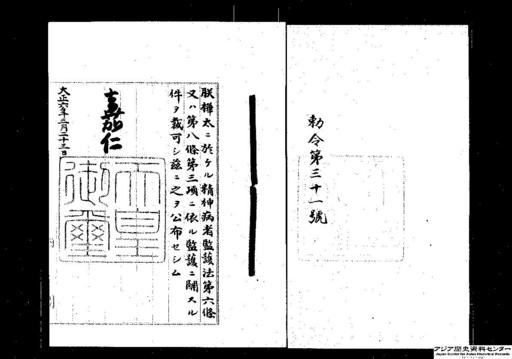 勅令第三十一號
朕樺太ニ於ケル精神病者監護法第六條
又ハ第八條第三項ニ依ル監護ニ關スル
件ヲ裁可シ茲ニ之ヲ公布セシム
嘉仁
天皇
御璽
大正六年三月二十三日
アジア歴史資料センター
Japan Center for Asian Historical Records